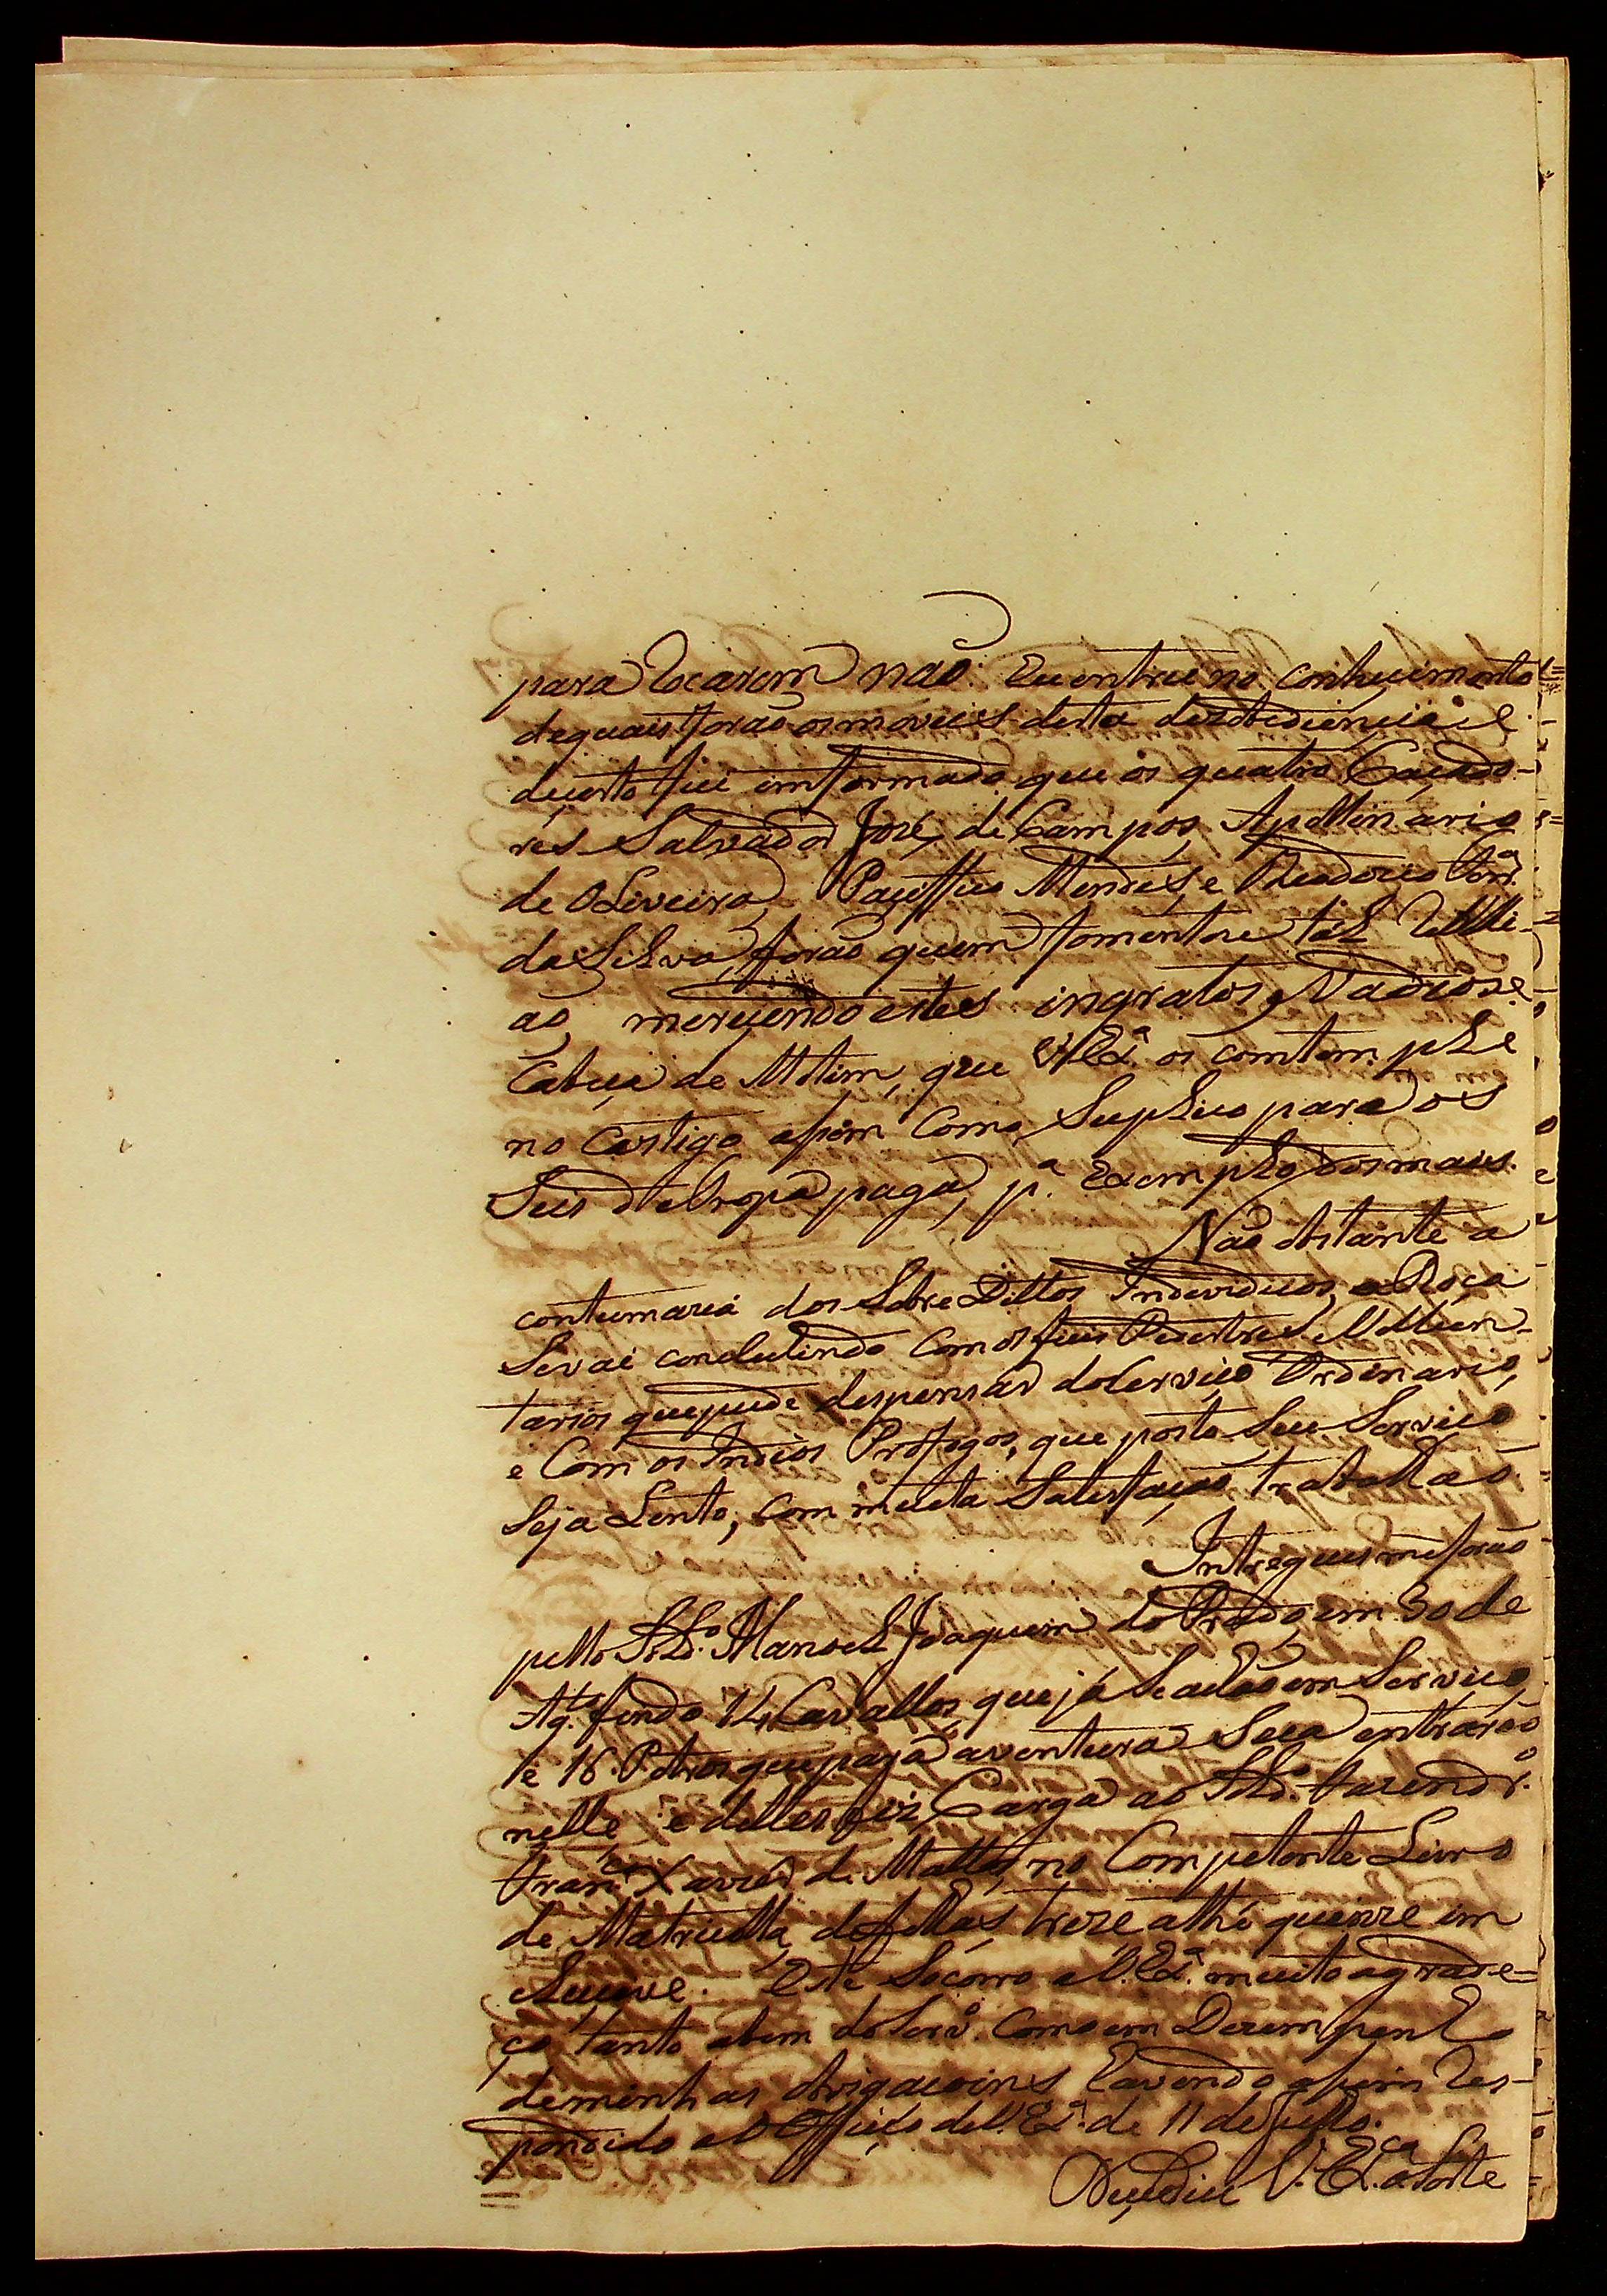 para tocarem não. Eu entrei no conhecimento
de quais forão os moveis desta dezobediencia e
de certo fui imformado que os quatro Caçado-
res Salvador José de Campos, Apollinario
de Oliveira, Paciffico Mendes, e Theodorico Corr.ª
da Silva, forão quem fomentou tál rebli-
ão, merecendo estes ingratos, Vadios e
Cabeça de Motim, que V. Ex.ª os comtemple
no Castigo assim Como Suplico para os
Seis de tropa paga, p.ª Exemplo dos mais.
Não obstante a
contumacia dos Sobre Dittos Individuos, a Roça
Se vai concluindo Com os seis Pedestres Vollun-
tarios que pude despensar do Serviço Ordinario,
e Com os Indios Profugos, que posto Seu Serviço
Seja Lento, Com muita Satisfação trabalhão
Intregues me forão
pello Sold.º Manoel Joaquim do Prado, em 30 de
Ag.to findo 14 Cavallos, que já Se achão em Serviço,
e 16. Potros que para a ventura Seca entrarão
nelle, e delles fiz Carga ao Sold.º Fazendr.º
Fran.co Xavier de Mattos, no Competente Livro
de Matriculla de folhas treze athé quinze im
cluzive. Este Socorro a V. Ex.ª muito agrade-
ço tanto a bem do Serv.º Como em Dezempenho
de minhas obrigacoins havendo assim res-
pondido ao Officio de V. Ex.ª de 11 de Julho.
V. Ex.cª a Sorte